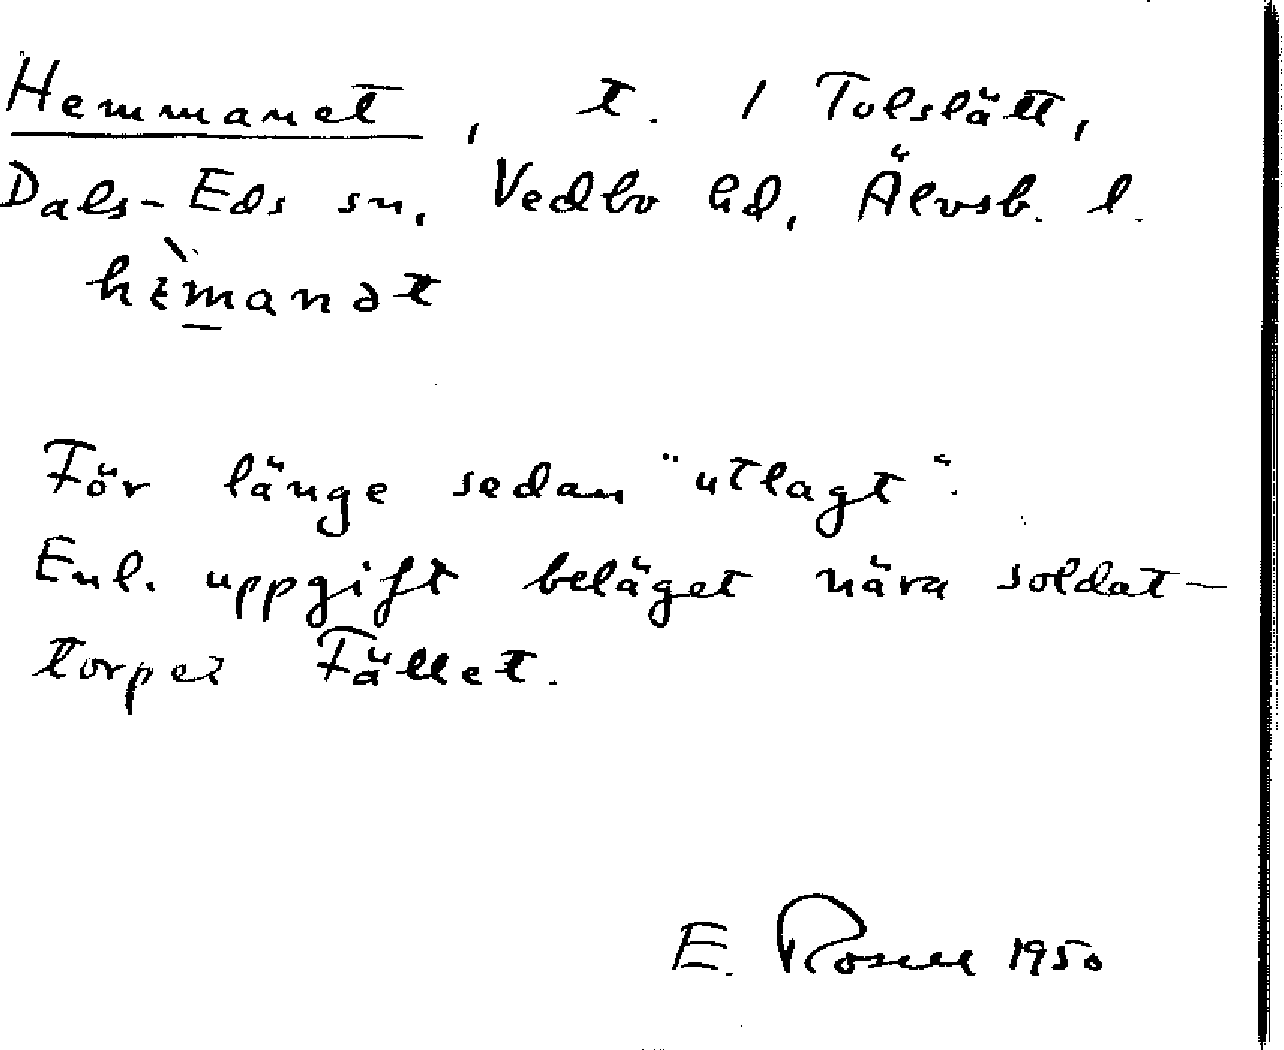 Hemmanet, t. / Tolslätt,
Dals-Eds sn, Vedbo hd, Älvsb. l.
hɛ̀manət
För länge sedan "utlagt".
Enl. uppgift beläget nära soldat-
torpet Fället.
E. Rosell 1950